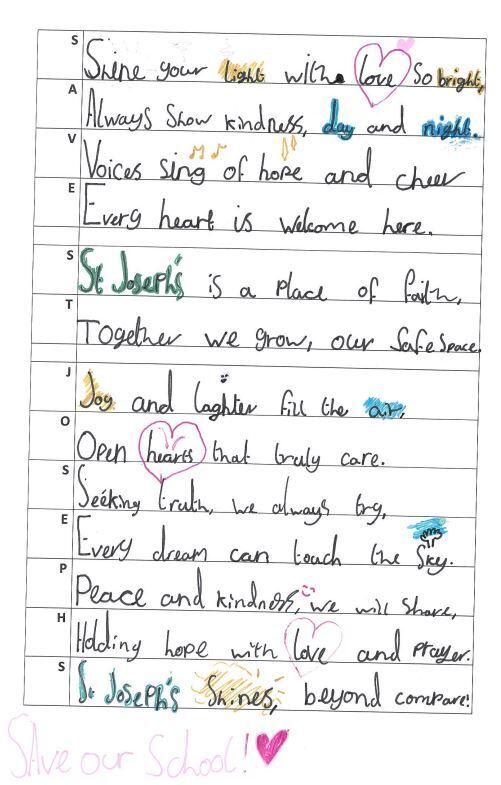 S Shine your light with love so bright,
A Always show kindness, day and night.
V Voices sing of hope and cheer
E Every heart is welcome here.
S St Joseph's is a place of faith,
T Together we grow, our safe space.
J Joy and laghter fill the air,
O Open hearts that truly care.
S Seeking truth, we always try,
E Every dream can touch the sky.
P Peace and kindness, we will share,
H Holding hope with love and prayer.
S St Joseph's Shines, beyond compare!
Save our School!